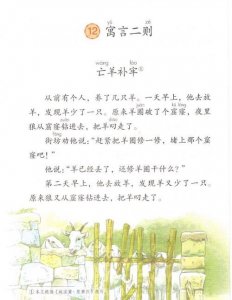 yù zé
12 寓言二则
wáng láo
亡羊补牢①
从前有个人，养了几只羊。一天早上，他去放
juàn kū long
羊，发现羊少了一只。原来羊圈破了个窟窿，夜里
zuān diāo
狼从窟窿钻进去，把羊叼走了。
jiē fang
街坊劝他说：“赶紧把羊圈修一修，堵上那个窟
窿吧！”
他说：“羊已经丢了，还修羊圈干什么？”
第二天早上，他去放羊，发现羊又少了一只。
原来狼又从窟窿钻进去，把羊叼走了。